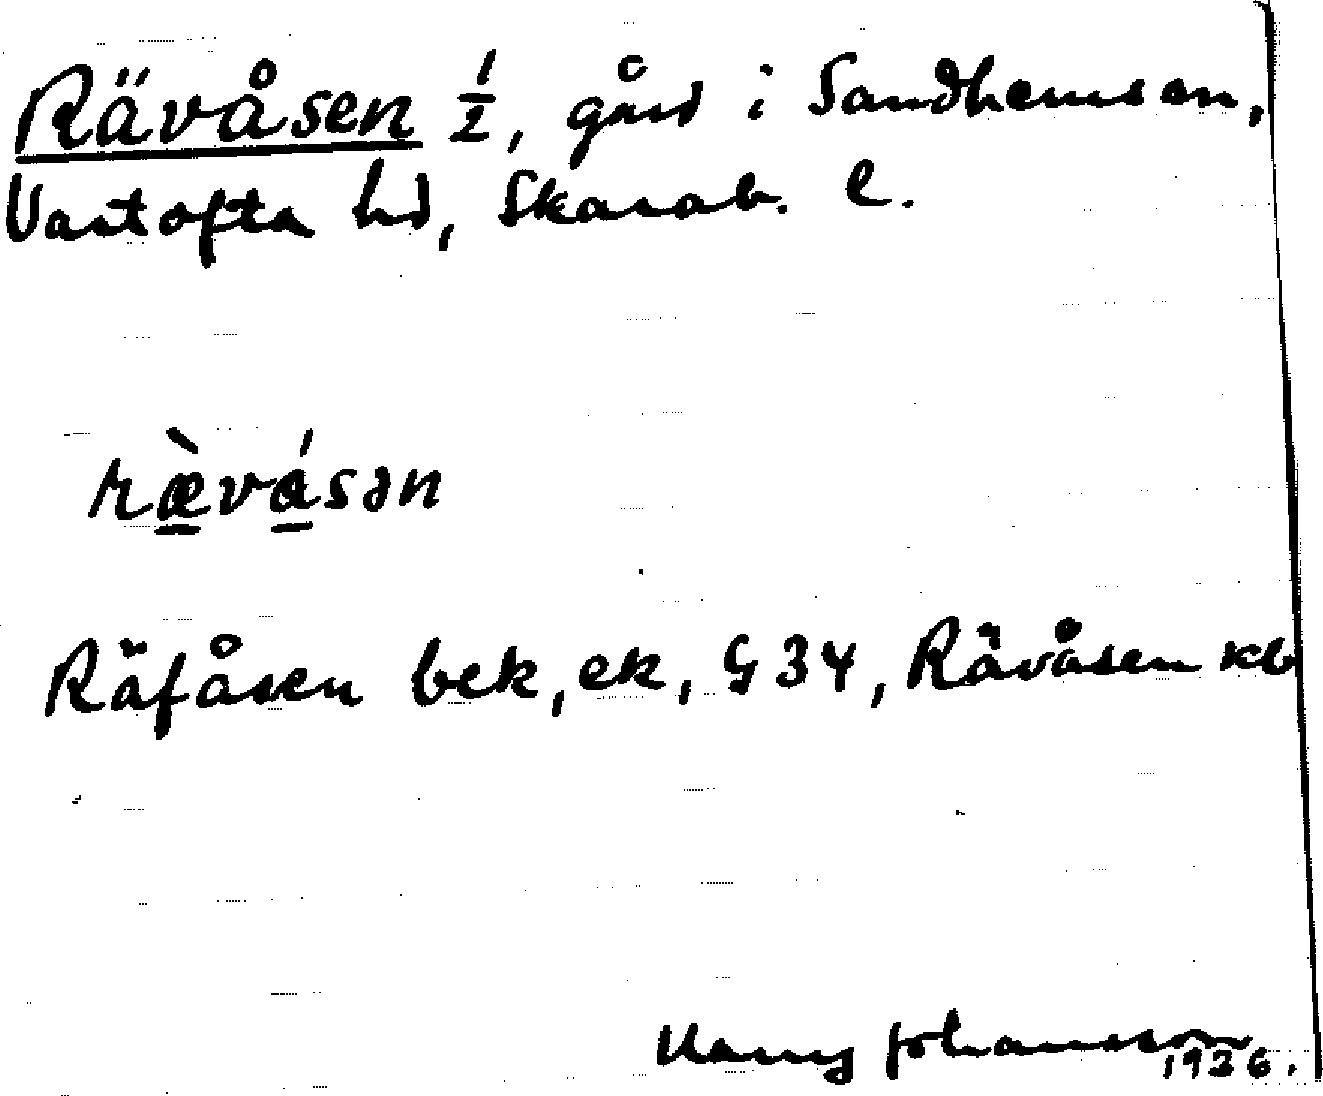 Rävåsen 1/2, gård i Sandhems sn,
Vartofta hd, Skarab. l.
ræ̀vásən
Räfåsen bek, ek, G 34, Rävåsen kb
Harry Johansson
1926.